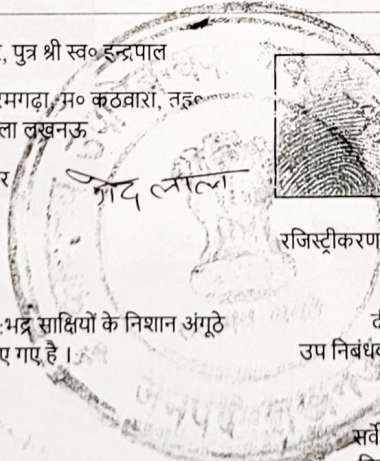 , पुत्र श्री स्व० इन्द्रपाल
मगढ़ा, म० कठवारा, तह०
ला लखनऊ
र
गेंद लाल
रजिस्ट्रीकरण
भद्र साक्षियों के निशान अंगूठे
ए गए है ।
उप निबंधक
जनपद
सर्वे